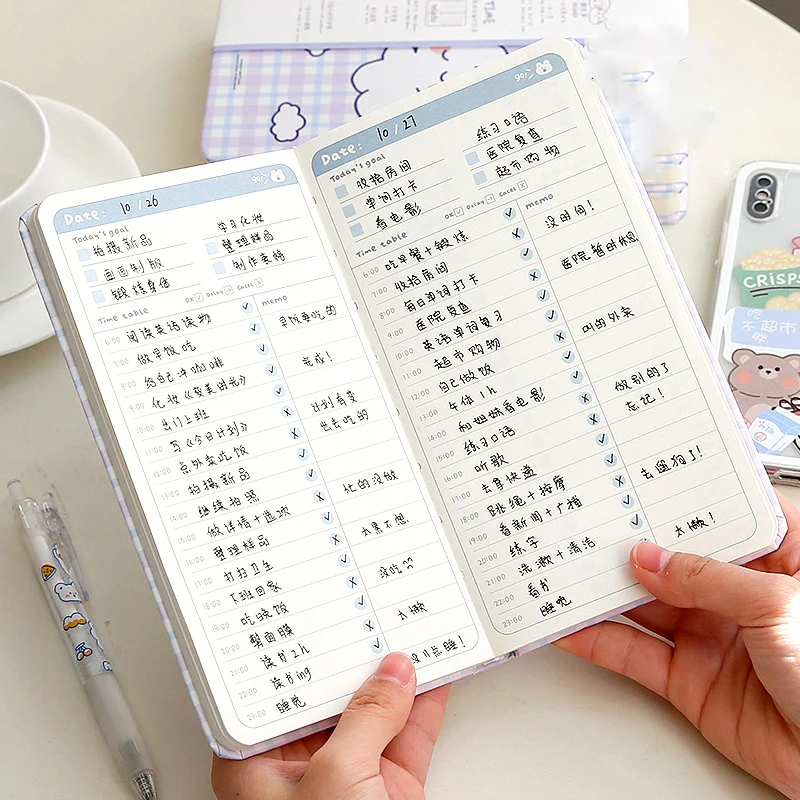 Date: 10 / 26
go!
Today's goal
拍摄新品
学习化妆
画画制版
整理样品
锻炼身体
制作表格
OK Delay Cacel
Time table
memo
6:00 阅读英语读物
早饭要吃的
7:00 做早饭吃
8:00 给自己冲咖啡
完成!
9:00 化妆《变美时光》
10:00 出门上班
计划有变
11:00 写《今日计划》
出去吃的
12:00 点外卖吃饭
13:00 拍摄新品
忙的没做
14:00 继续拍照
15:00 做详情+选款
太累不想
16:00 整理样品
17:00 打扫卫生
没吃
18:00 下班回家
19:00 吃晚饭
太懒
20:00 帮面膜
21:00 读书2h
11点睡!
22:00 读书ing
23:00 睡觉
Date: 10 / 27
go!
Today's goal
练习口语
收拾房间
医院复查
单词打卡
超市购物
看电影
OK Delay Cacel
Time table
memo
6:00 吃早餐+锻炼
没时间!
7:00 收拾房间
8:00 每日单词打卡
医院暂时休息
9:00 医院复查
10:00 英语单词复习
11:00 超市购物
叫的外卖
12:00 自己做饭
13:00 午休1h
做别的了
14:00 和姐妹看电影
忘记!
15:00 练习口语
16:00 听歌
17:00 去拿快递
去遛狗了!
18:00 跳绳+按摩
19:00 看新闻+广播
20:00 练字
太懒!
21:00 洗漱+清洁
22:00 看书
23:00 睡觉
TIME
CRISPS
吃
不超市
胖